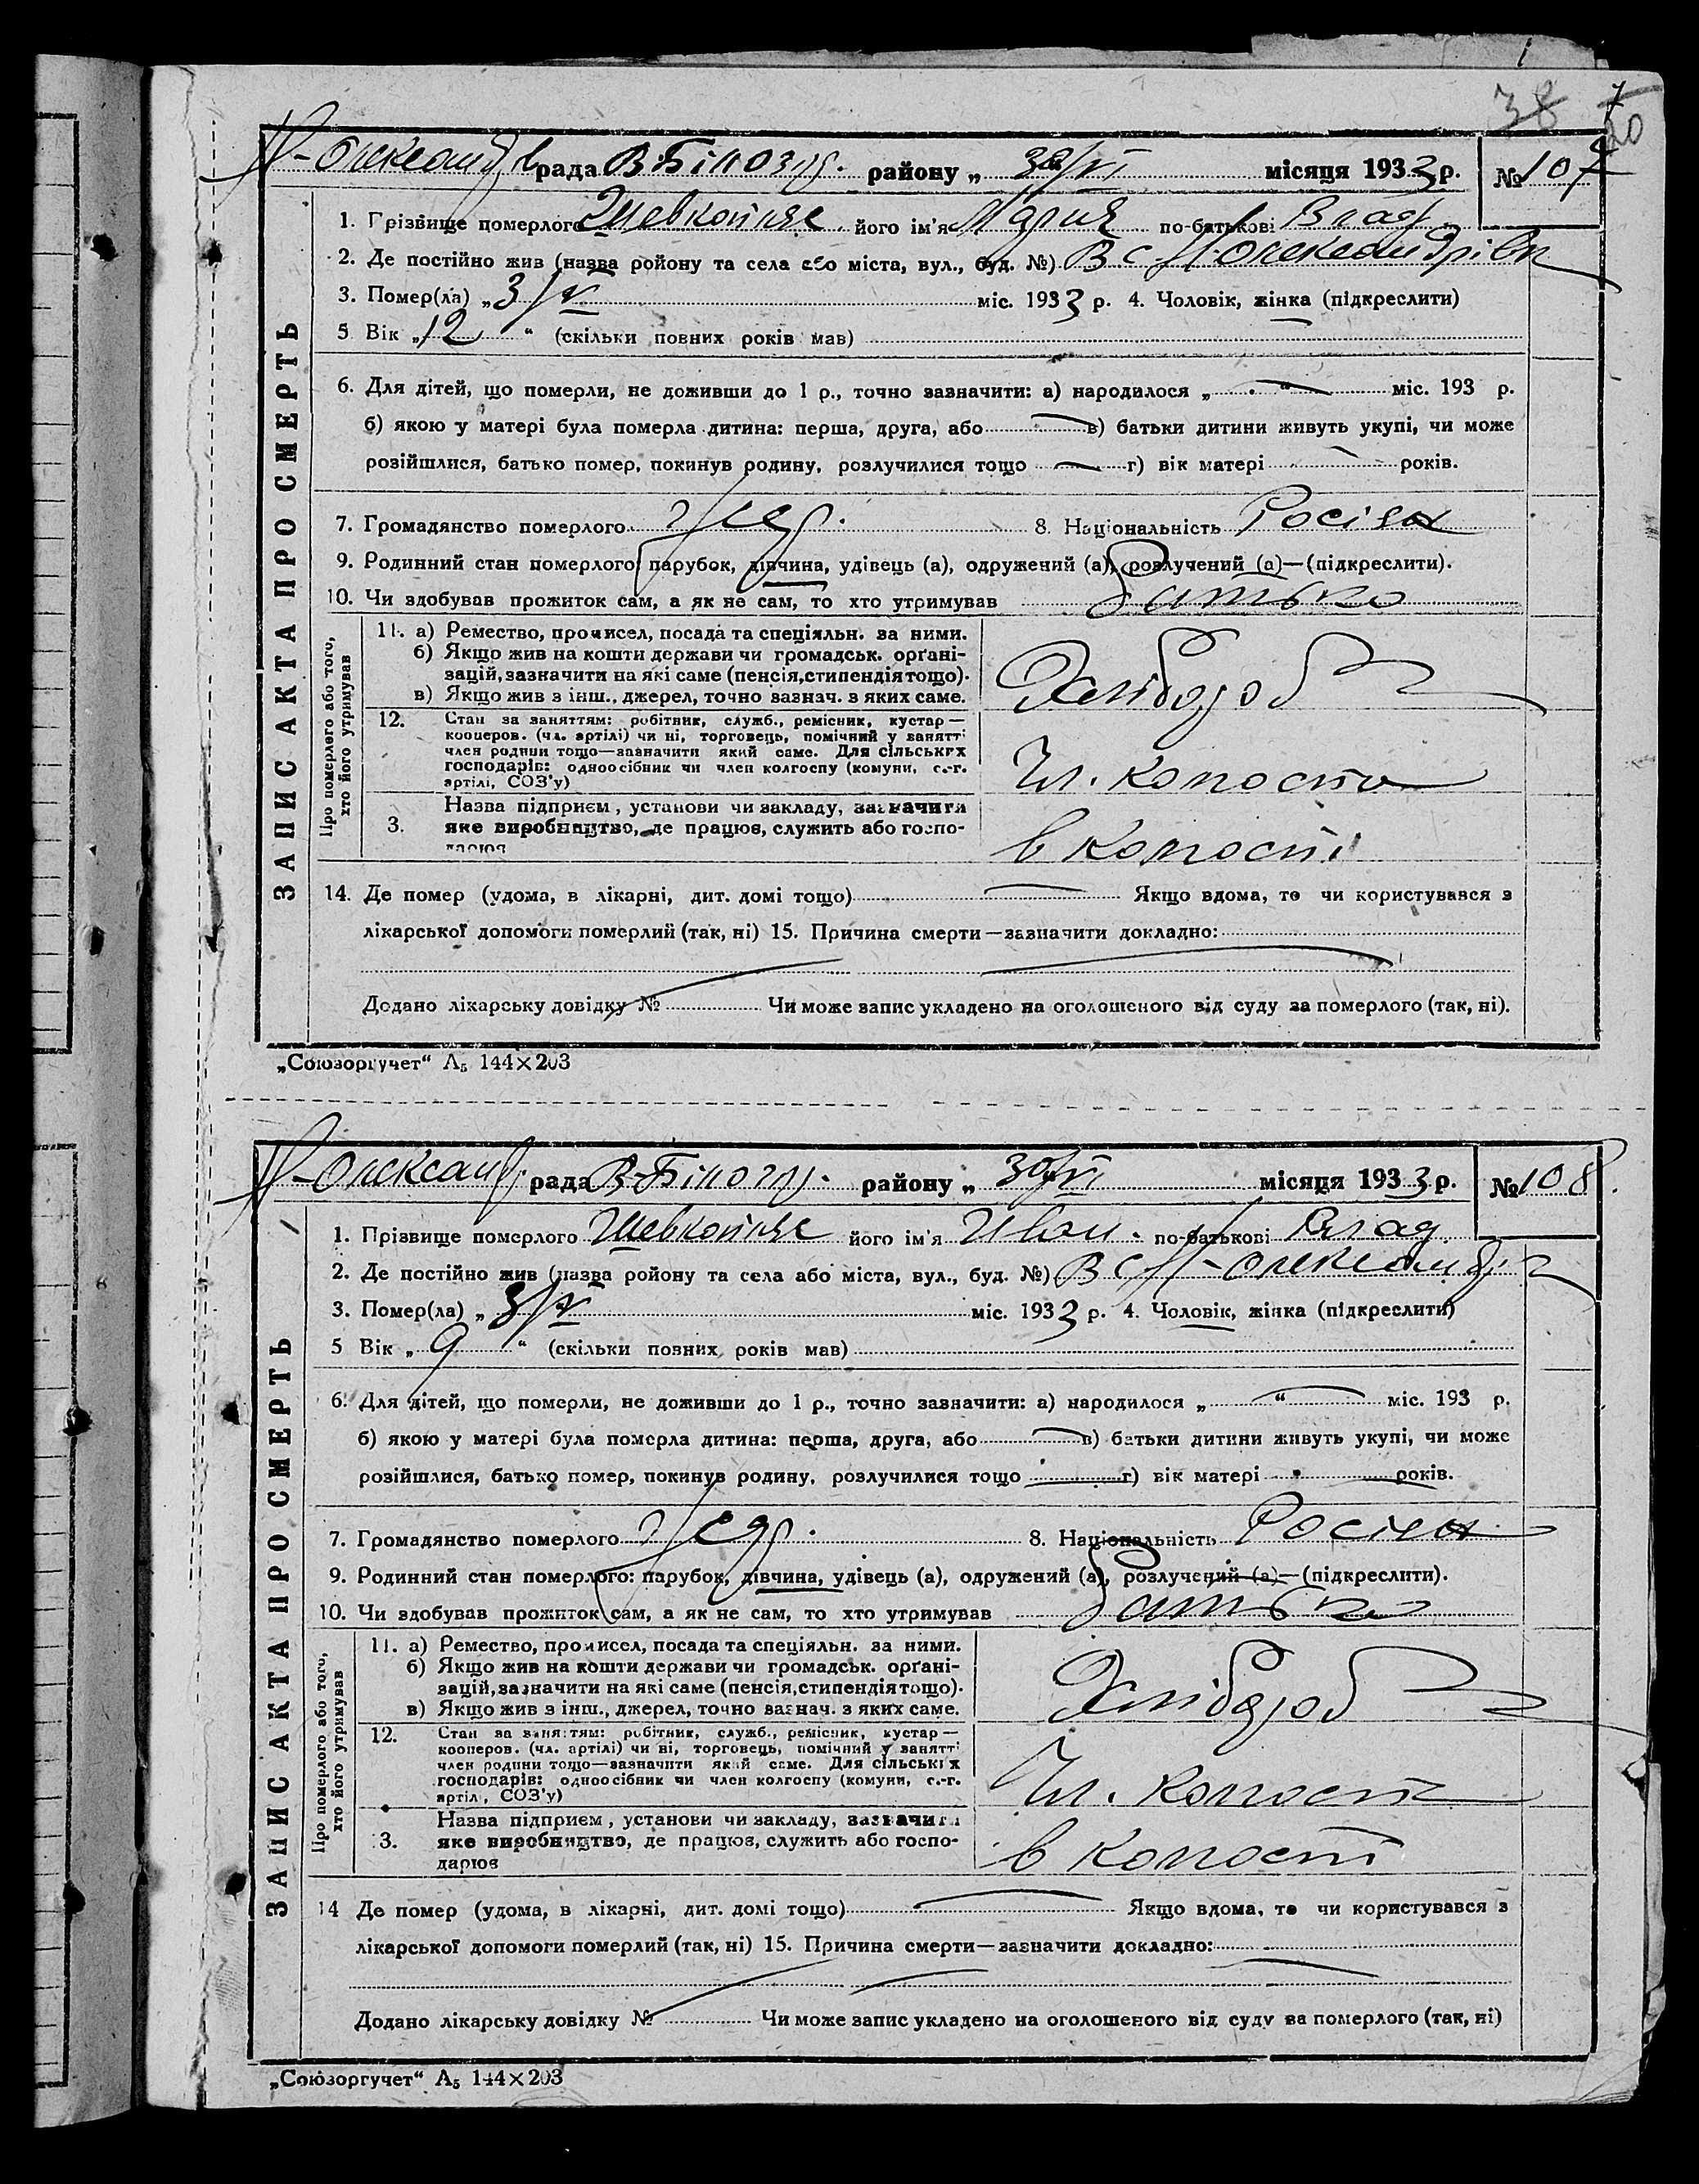 38 7
20
Н-Олександрів рада В-Білозер. району „ 30/VI місяця 1933 р. № 107
1. Прізвище померлого Шевкопляс його ім'я Мария по-батькові Влад.
2. Де постійно жив (назва ройону та села або міста, вул., буд. №) В с Н-Олександрівц
3. Помер(ла) „ 3/V міс. 1933 р. 4. Чоловік, жінка (підкреслити)
5 Вік „ 12 “ (скільки повних років мав)
6. Для дітей, що померли, не доживши до 1 р., точно зазначити: а) народилося „ “ міс. 193 р.
б) якою у матері була померла дитина: перша, друга, або в) батьки дитини живуть укупі, чи може
розійшлися, батько помер, покинув родину, розлучилися тощо г) вік матері років.
7. Громадянство померлого 8. Національність Росіян
9. Родинний стан померлого: парубок, дівчина, удівець (а), одружений (а), розлучений (а)—(підкреслити).
10. Чи здобував прожиток сам, а як не сам, то хто утримував батько
ЗАПИС АКТА ПРО СМЕРТЬ
Про померлого або того,
хто його утримував
11. а) Ремество, промисел, посада та спеціяльн. за ними.
б) Якщо жив на кошти держави чи громадськ. орґані-
зацій, зазначити на які саме (пенсія, стипендія тощо).
в) Якщо жив з інш., джерел, точно зазнач. з яких саме.
Хлібороб
12. Стан за заняттям: робітник, служб., ремісник, кустар—
кооперов. (чл. артілі) чи ні, торговець, помічний у занятті
член родини тощо—зазначити який саме. Для сільських
господарів: одноосібник чи член колгоспу (комуни, с.-г.
артілі, СОЗ'у)
Чл. колгоспу
3. Назва підприєм, установи чи закладу, зазначити
яке виробництво, де працює, служить або госпо-
дарює
в колгоспі
14. Де помер (удома, в лікарні, дит. домі тощо) Якщо вдома, то чи користувався з
лікарської допомоги померлий (так, ні) 15. Причина смерти—зазначити докладно:
Додано лікарську довідку № Чи може запис укладено на оголошеного від суду за померлого (так, ні).
„Союзоргучет“ А₅ 144×203
Н-Олександ. рада В-Білозер. району „ 30/VI місяця 1933 р. № 108.
1. Прізвище померлого Шевкопляс його ім'я Иван. по-батькові Влад.
2. Де постійно жив (назва ройону та села або міста, вул., буд. №) В с Н-Олександр
3. Помер(ла) „ 3/V міс. 1933 р. 4. Чоловік, жінка (підкреслити)
5 Вік „ 9 “ (скільки повних років мав)
6. Для дітей, що померли, не доживши до 1 р., точно зазначити: а) народилося „ “ міс. 193 р.
б) якою у матері була померла дитина: перша, друга, або в) батьки дитини живуть укупі, чи може
розійшлися, батько помер, покинув родину, розлучилися тощо г) вік матері років.
7. Громадянство померлого 8. Національність Росіян
9. Родинний стан померлого: парубок, дівчина, удівець (а), одружений (а), розлучений (а)—(підкреслити).
10. Чи здобував прожиток сам, а як не сам, то хто утримував батько
ЗАПИС АКТА ПРО СМЕРТЬ
Про померлого або того,
хто його утримував
11. а) Ремество, промисел, посада та спеціяльн. за ними.
б) Якщо жив на кошти держави чи громадськ. орґані-
зацій, зазначити на які саме (пенсія, стипендія тощо).
в) Якщо жив з інш., джерел, точно зазнач. з яких саме.
Хлібороб
12. Стан за заняттям: робітник, служб., ремісник, кустар—
кооперов. (чл. артілі) чи ні, торговець, помічний у занятті
член родини тощо—зазначити який саме. Для сільських
господарів: одноосібник чи член колгоспу (комуни, с.-г.
артіл, СОЗ'у)
Чл. колгосп
3. Назва підприєм, установи чи закладу, зазначити
яке виробництво, де працює, служить або госпо-
дарює
в колгоспі
14 Де помер (удома, в лікарні, дит. домі тощо) Якщо вдома, то чи користувався з
лікарської допомоги померлий (так, ні) 15. Причина смерти—зазначити докладно:
Додано лікарську довідку № Чи може запис укладено на оголошеного від суду за померлого (так, ні)
„Союзоргучет“ А₅ 144×203